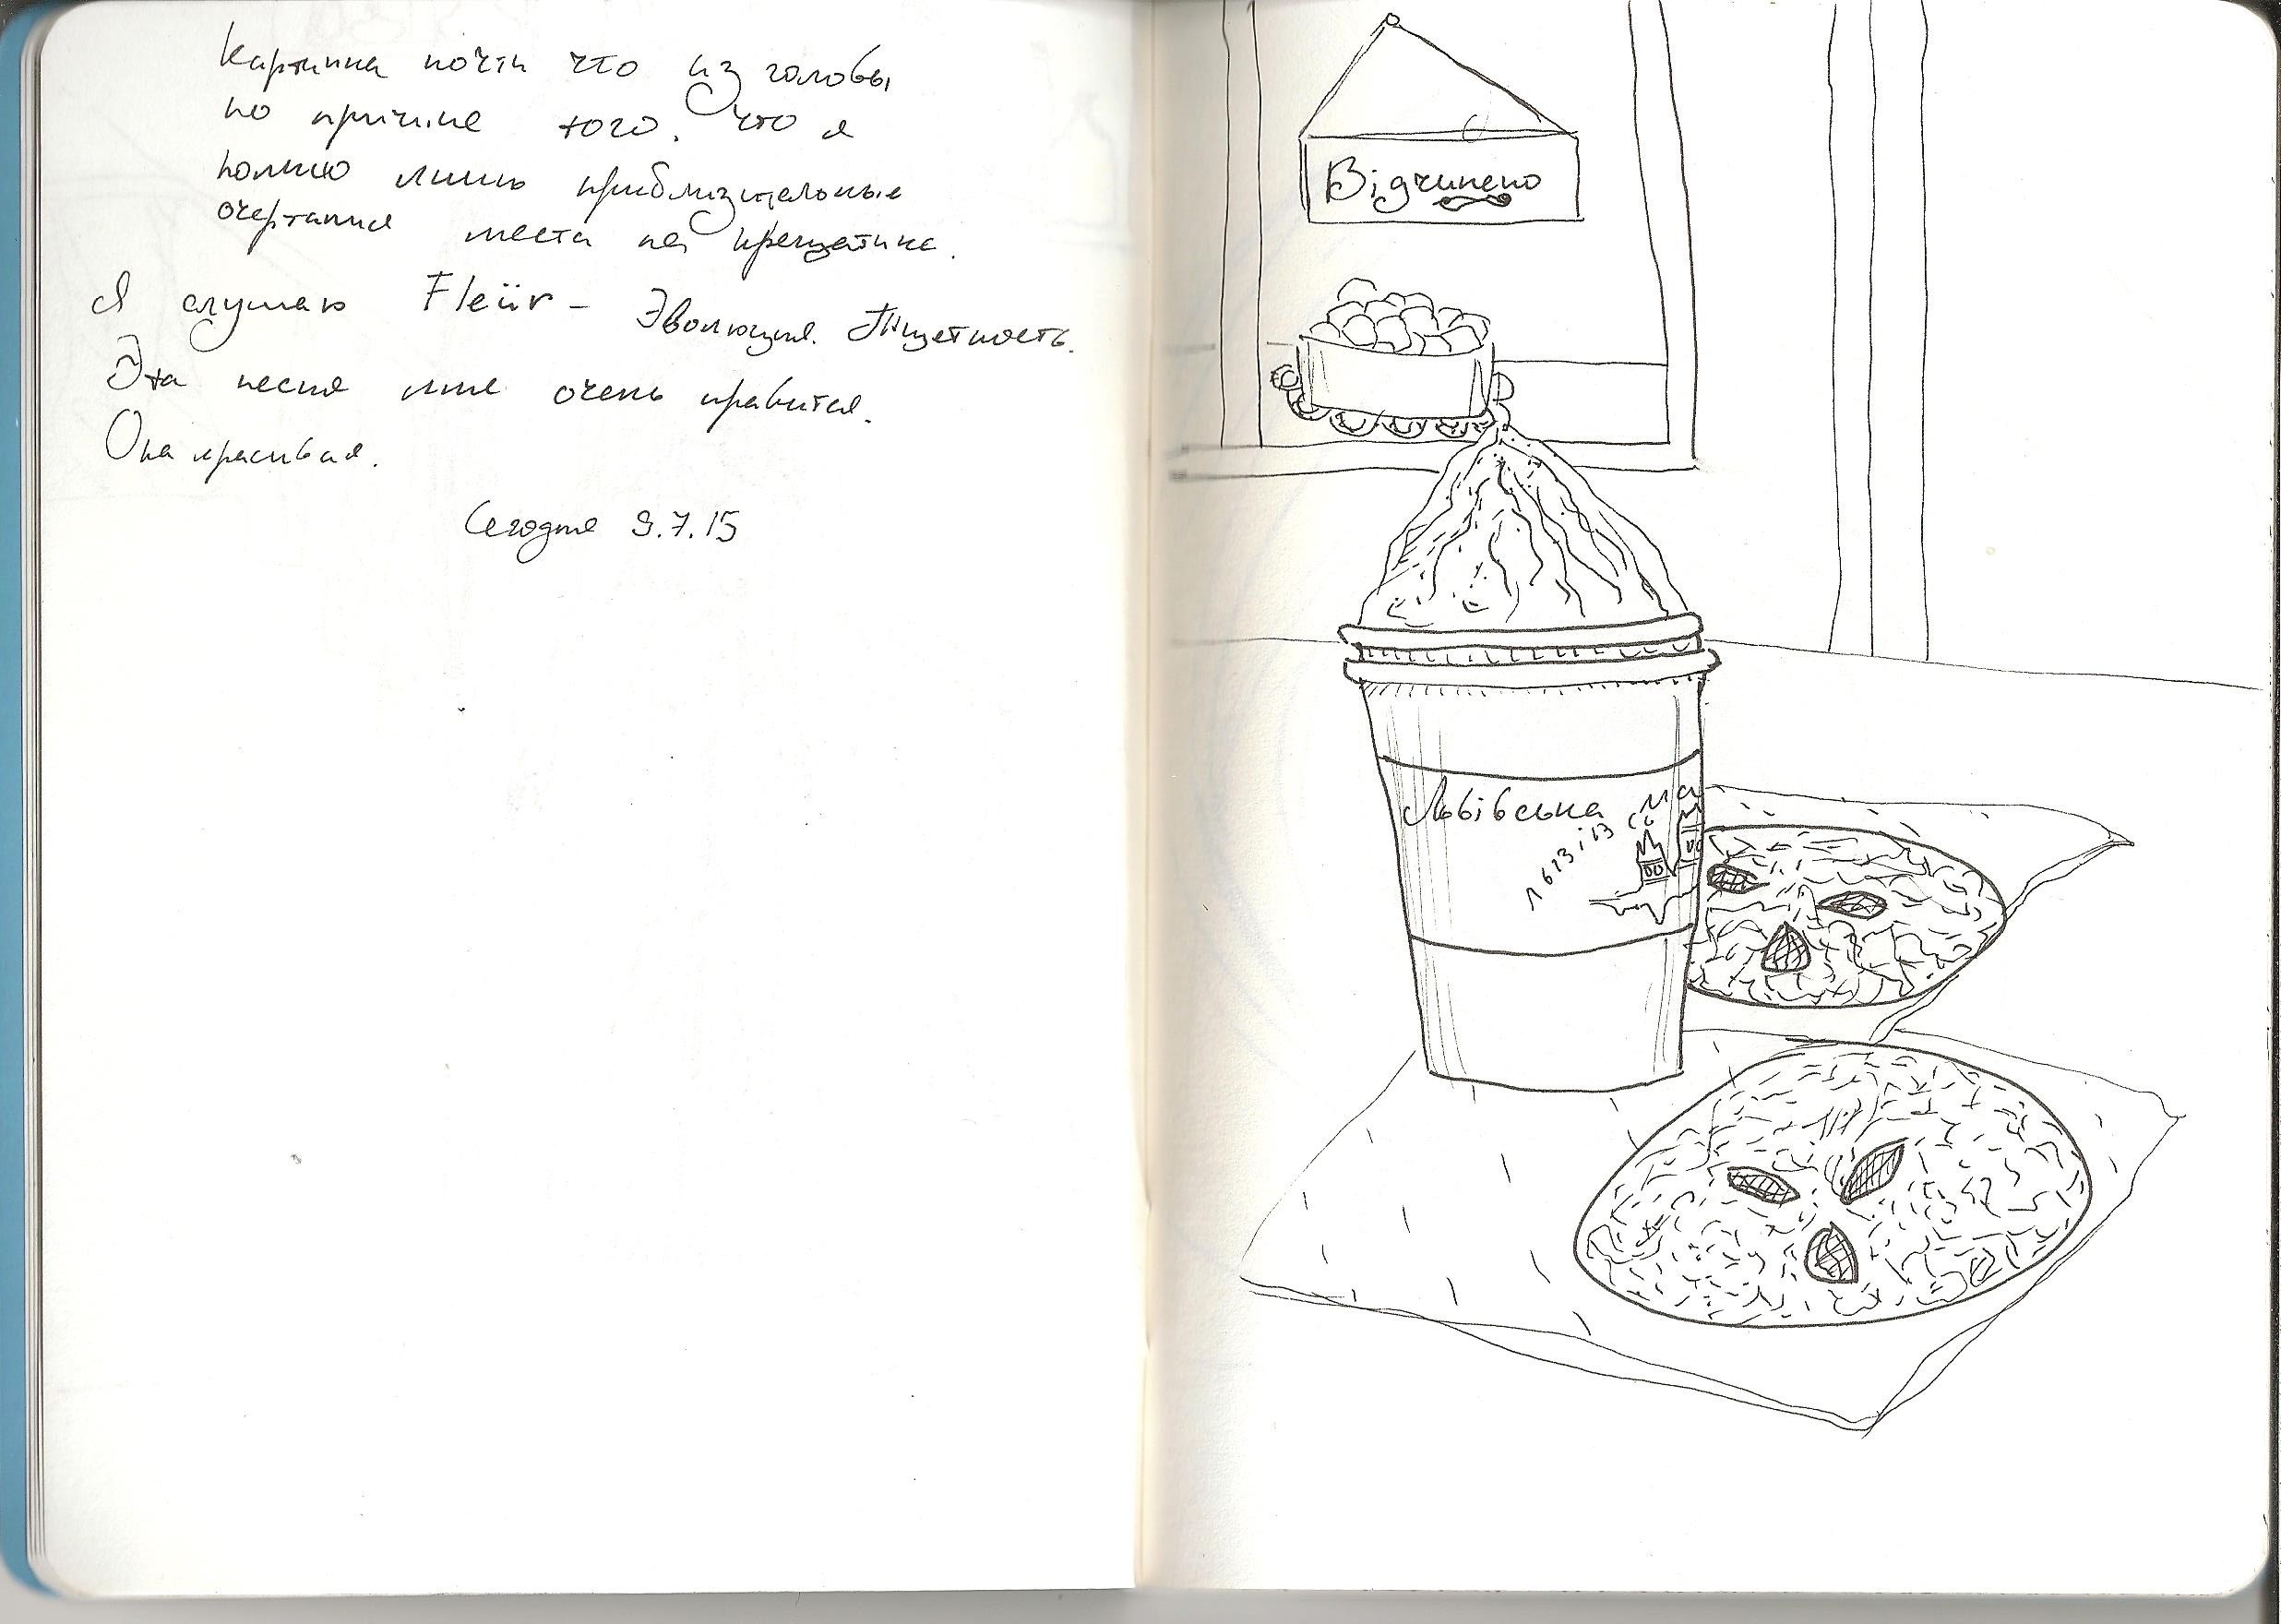 Картинка почти что из головы
по причине того, что я
помню лишь приблизительные
очертания места на Крещатике.
Я слушаю Fleür - Эволюция. Тщетность.
Эта песня мне очень нравится.
Она красивая.
Сегодня 9.7.15
Відчинено
Львівська ма